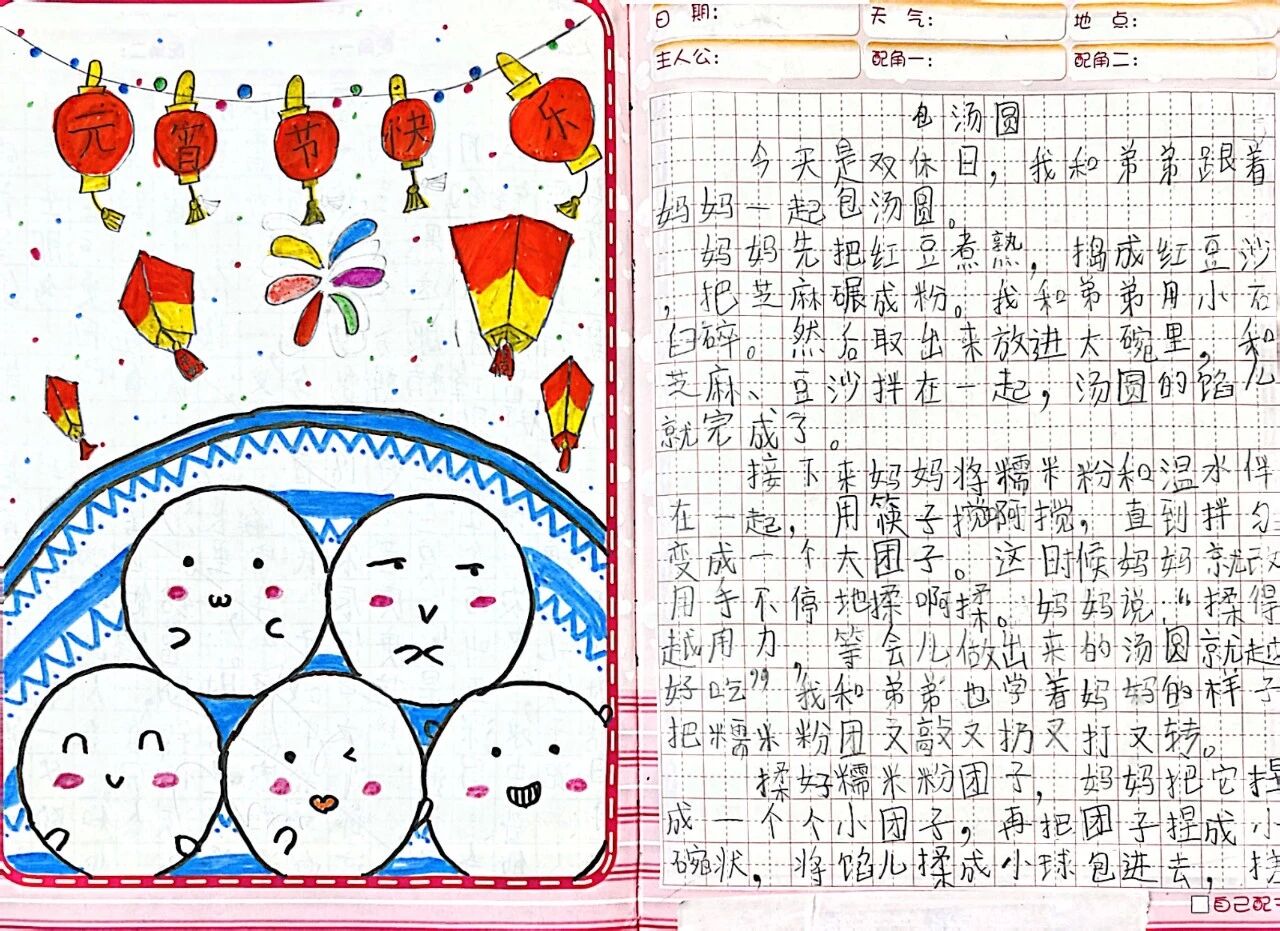 元宵节快乐
日 期:
天 气:
地 点:
主人公:
配角一:
配角二:
包汤圆
今天是双休日，我和弟弟跟着
妈妈一起包汤圆。
妈妈先把红豆煮熟，捣成红豆沙
，把芝麻碾成粉。我和弟弟用小石
臼碎。然后取出来放进大碗里，和
芝麻、豆沙拌在一起，汤圆的馅儿
就完成了。
接下来妈妈将糯米粉和温水伴
在一起，用筷子搅啊搅，直到拌匀
变成一个大团子。这时候妈妈就改
用手不停地揉啊揉。妈妈说“揉得
越用力，等会儿做出来的汤圆就越
好吃”，我和弟弟也学着妈妈的样子
把糯米粉团又敲又扔又打又转。
揉好糯米粉团子，妈妈把它捏
成一个个小团子，再把团子捏成小
碗状，将馅儿揉成小球包进去，搓
自己配